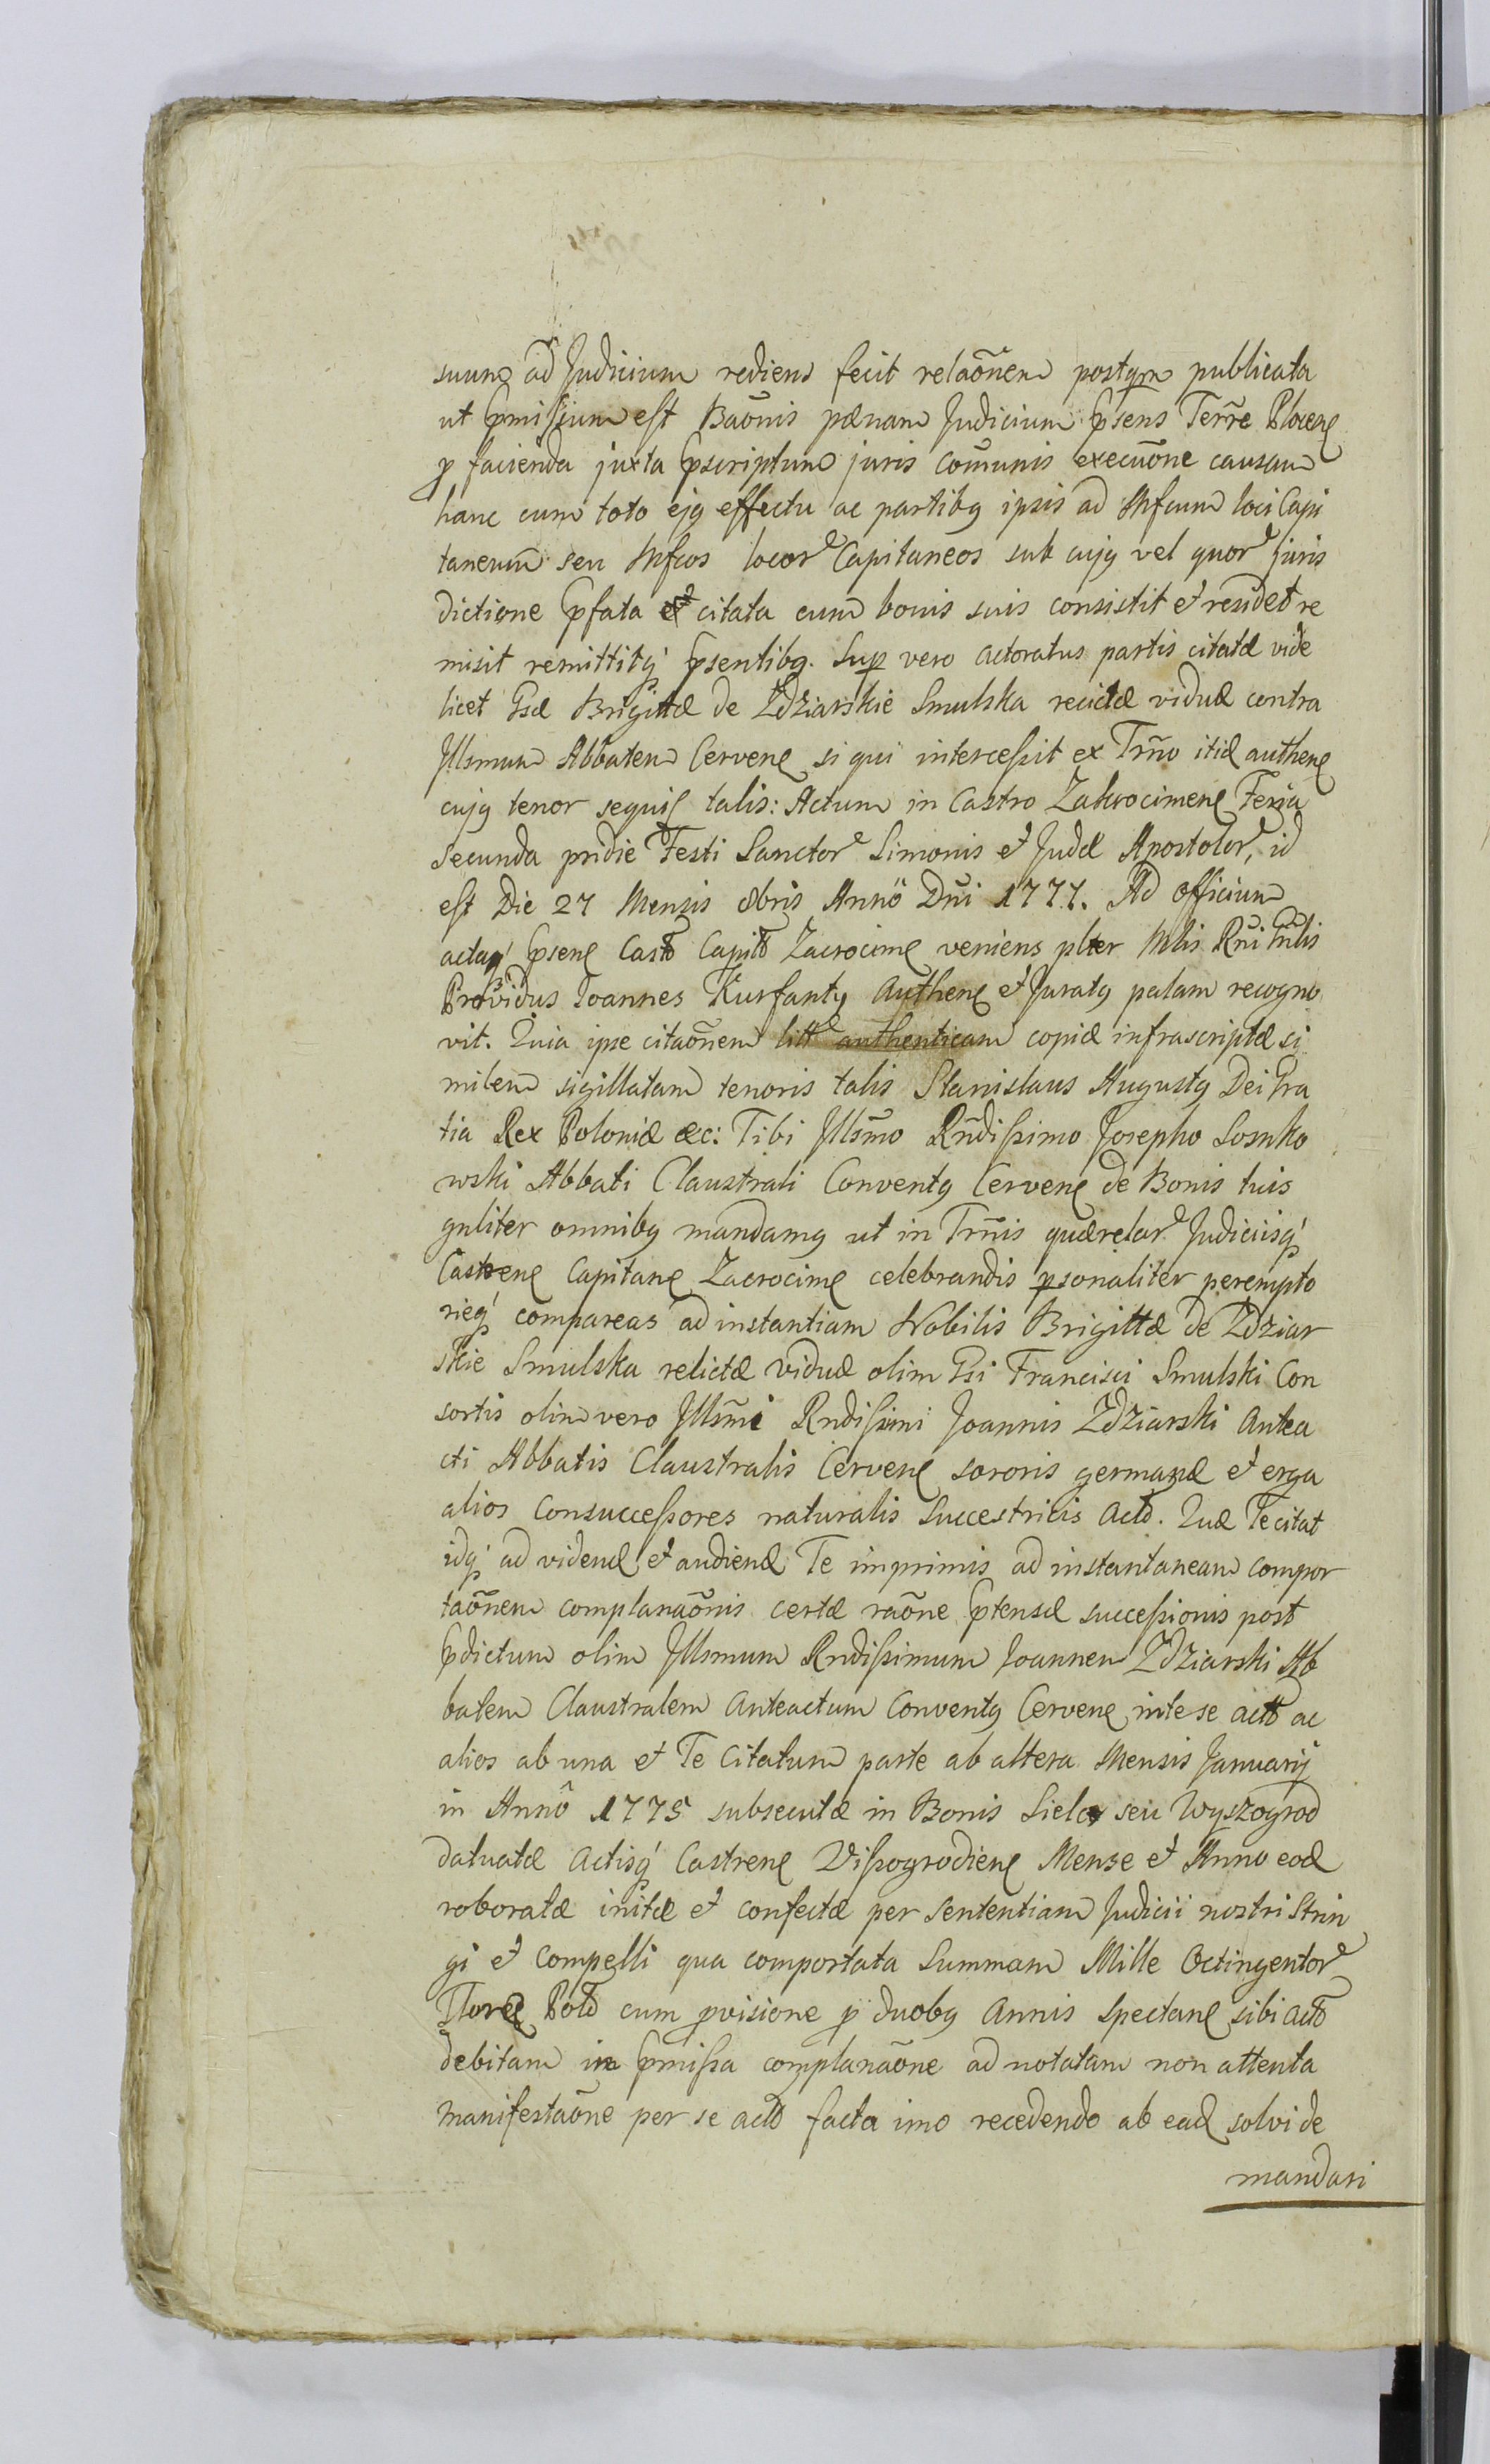 suum ad Judicium rediens fecit relaõnem postqm publicata
ut pmissum est Baõnis pænam Judicium psens Terre Plocen
p facienda juxta pscriptum juris comunis execuõne causam
hanc cum toto ejq effectu ac partibq ipsis ad Mfcum loci Capi
taneum seu Mfcos locor Capitaneos sub cujq vel quor juris
dictione pfata citata cum bonis suis consistit et residet re
misit remittitq psentibq. Sup vero actoratus partis citatæ vide
licet Gsæ Brigittæ de Zdziarskie Smulska relictæ viduæ contra
Jllsmum Abbatem Cerven si qui intercessit ex Trño itid authen
cujq tenor sequit talis: Actum in Castro Zakrocimen Feria
Secunda pridie Festi Sanctor Simonis et Judæ Apostolor, id
est Die 27 Mensis 8bris Anno Dni 1777. Ad officium
actaq psen Cast Capit Zacrocime veniens plter Mlis Rni Gnlis
Providus Joannes Kurfantq Authen et Juratq palam recogno
vit. Quia ipse citaõnem litt authenticam copiæ infrascriptæ si
milem sigillatam tenoris talis Stanislaus Augustq Dei Gra
tia Rex Poloniæ &c: Tibi Jllsmo Rndissimo Josepho Sosnko
wski Abbati Claustrali Conventq Cerven de Bonis tuis
gnliter omnibq mandamq ut in Trñis quærelar Judiciisq
Castren Capitan Zacrocime celebrandis psonaliter perempto
rieq compareas ad instantiam Nobilis Brigittæ de Zdziar
skie Smulska relictæ viduæ olim Gsi Francisci Smulski Con
sortis olim vero Jllsmi Rndissimi Joannis Zdziarski Antea
cti Abbatis Claustralis Cerven sororis germanæ et erga
alios Consuccessores naturalis Succestricis Act. Quæ Te citat
idq ad viden et audien Te imprimis ad instantaneam compor
taõnem complanaõnis certæ raõne ptensæ successionis post
pdictum olim Jllsmum Rndissimum Joannem Zdziarski Ab
batem Claustralem Anteactum Conventq Cerven inte se act ac
alios ab una et Te Citatum parte ab altera Mensis Januarij
in Anno 1775 subsecutæ in Bonis Siela seu Wyszogrod
datuatæ Actisq Castren Vissogrodien Mense et Anno eod
roboratæ initæ et confectæ per Sententiam Judicii nostri strin
gi et Compelli qua comportata Summam Mille Octingentor
Floren Pol cum pvisione p duobq Annis Spectan sibi act
debitam in pmissa complanaõne ad notatam non attenta
manifestaõne per se act facta imo recedendo ab ead solvi de
mandari